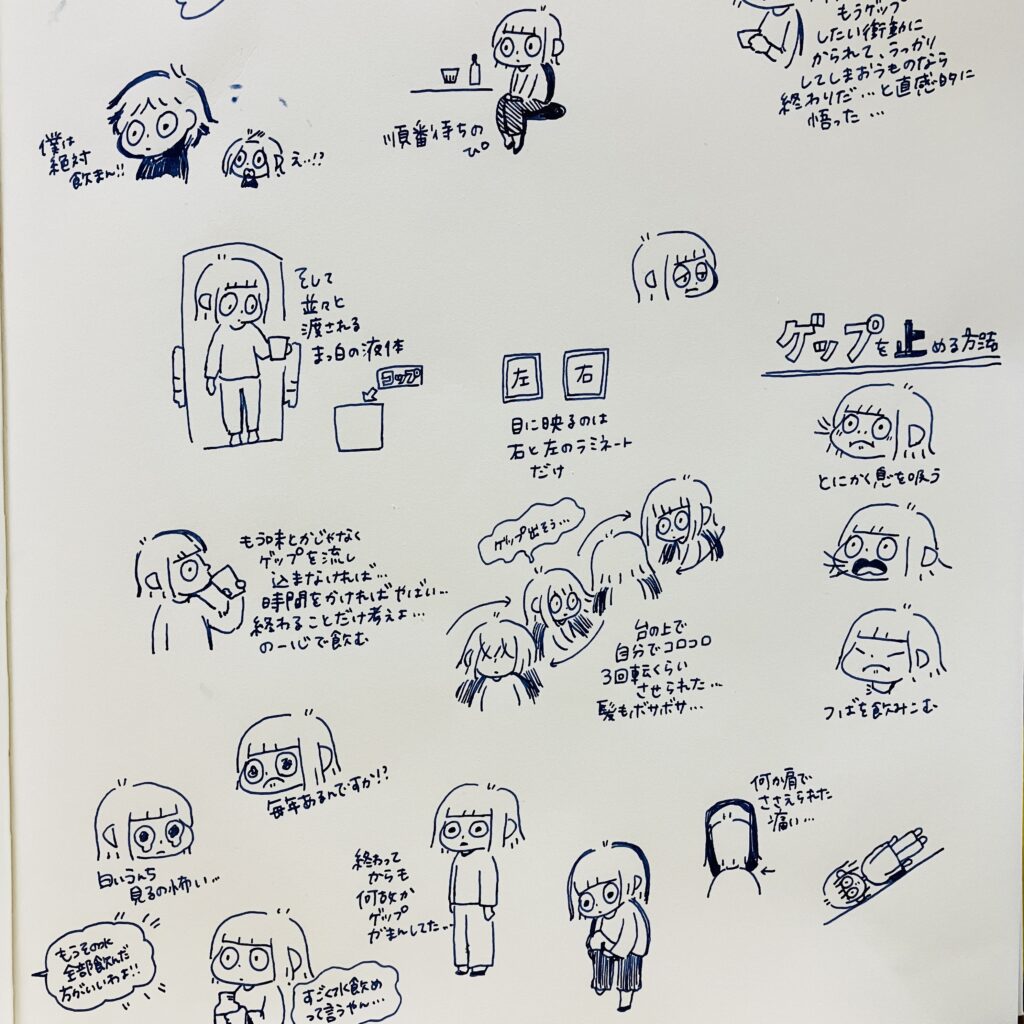 もうゲップ
したい衝動に
かられて、うっかり
してしまおうものなら
終わりだ…と直感的に
悟った…
僕は
絶対
飲まん!!
え…!?
順番待ちの
ぴ。
そして
並々と
渡される
まっ白の液体
ヨップ
左
右
目に映るのは
右と左のラミネート
だけ
ゲップを止める方法
とにかく息を吸う
つばを飲みこむ
もう味とかじゃなく
ゲップを流し
込まなければ…
時間をかければやばい…
終わることだけ考えよ…
の一心で飲む
ゲップ出そう…
台の上で
自分でコロコロ
3回転くらい
させられた…
髪もボサボサ…
毎年あるんですか!?
白いうんち
見るの怖い…
終わって
からも
何故か
ゲップ
がまんしてた…
何か肩で
ささえられた
痛い…
もうその水
全部飲んだ
方がいいわよ!!
すごく水飲め
って言うやん…